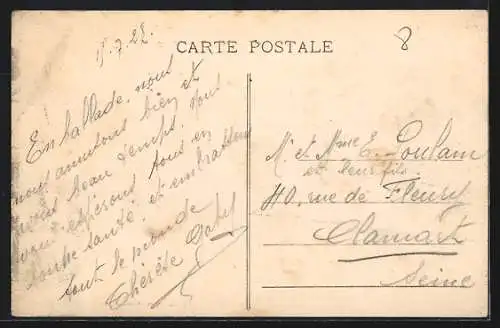 15.7.22
CARTE POSTALE
8
En ballade, nous
nous amusons bien et
avons beau temps. nous
vous espérons tous en
bonne santé, et embrassons
tout le monde
Thérèse
M. et Mme E. Poulain
et leur fils
40, rue de Fleury
Clamart
Seine